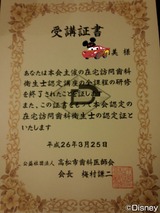 受講証書
美 様
あなたは本会主催の在宅訪問歯科
衛生士認定講座の全課程の研修
を終了されたことを証します
また、この証書をもって本会認定の
在宅訪問歯科衛生士の認定証と
いたします
平成26年3月25日
公益社団法人 高松市歯科医師会
会長
©Disney